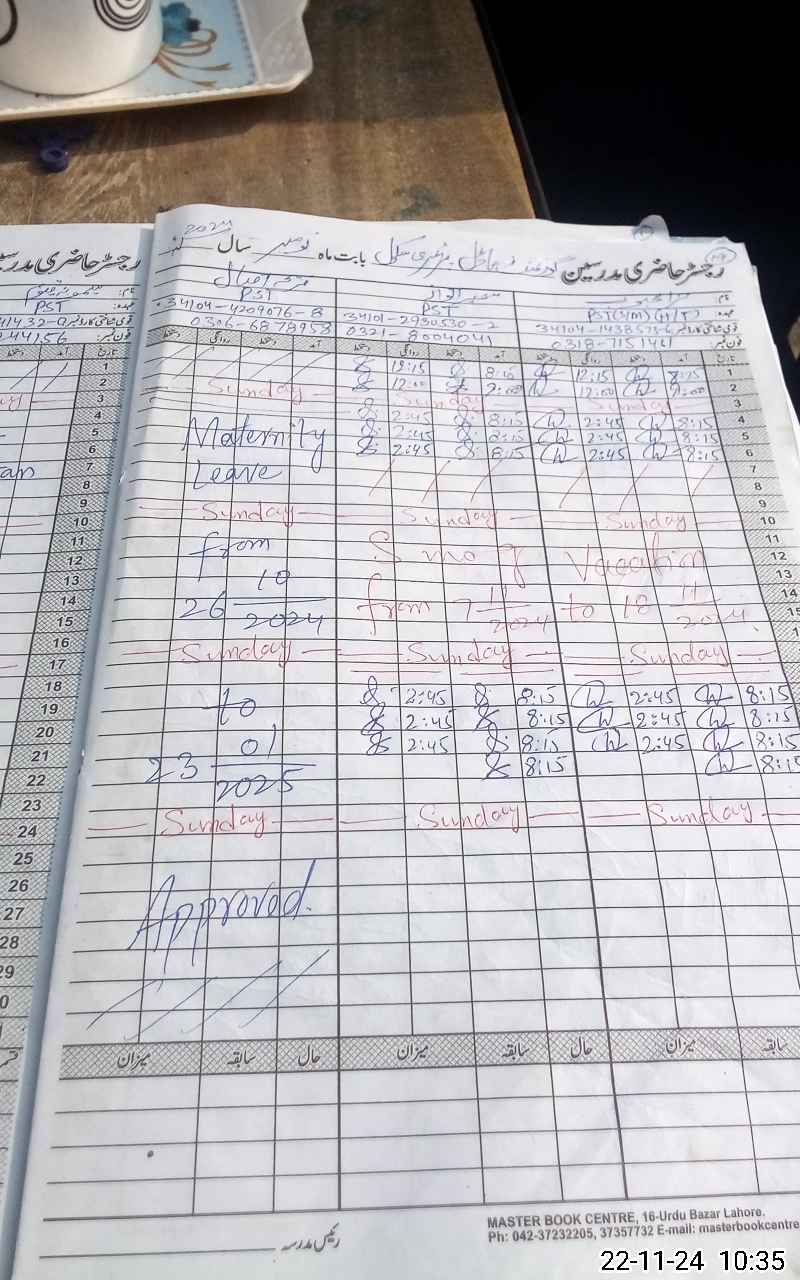 رجسٹر حاضری مدرسین گورنمنٹ ماڈل پرائمری سکول بابت ماہ نومبر سال 2024
رجسٹر حاضری مدرسین
نام:
عہدہ: PST(M)(H/T) PST PST
قومی شناختی کارڈ نمبر: 34101-2930530-2 34104-4209076-8
فون نمبر: 0321-8004041 0306-6878958
PST
44156
تاریخ آمد دستخط روانگی دستخط آمد دستخط روانگی دستخط آمد دستخط روانگی دستخط
1 8:15 12:15 8:15 12:15
2 8:00 12:00 8:00 12:00
3 Sunday Sunday Sunday
4 8:15 2:45 8:15 2:45
5 8:15 2:45 8:15 2:45 Maternity
6 8:15 2:45 8:15 2:45
7 Leave
8
9
10 Sunday Sunday Sunday
11 from
12 Smog Vacation
13 26 10/2024
14 from 7 11/2024 to 18 11/2024
15
16
17 Sunday Sunday Sunday
18 8:15 2:45 8:15 2:45 to
19 8:15 2:45 8:15 2:45
20 8:15 2:45 8:15 2:45
21 8:15 8:15 23 01/2025
22
23
24 Sunday Sunday Sunday
25
26
27 Approved.
28
29
سابقہ میزان حال سابقہ میزان حال سابقہ میزان
رئیس مدرسہ
MASTER BOOK CENTRE, 16-Urdu Bazar Lahore.
Ph: 042-37232205, 37357732 E-mail: masterbookcentre
22-11-24 10:35